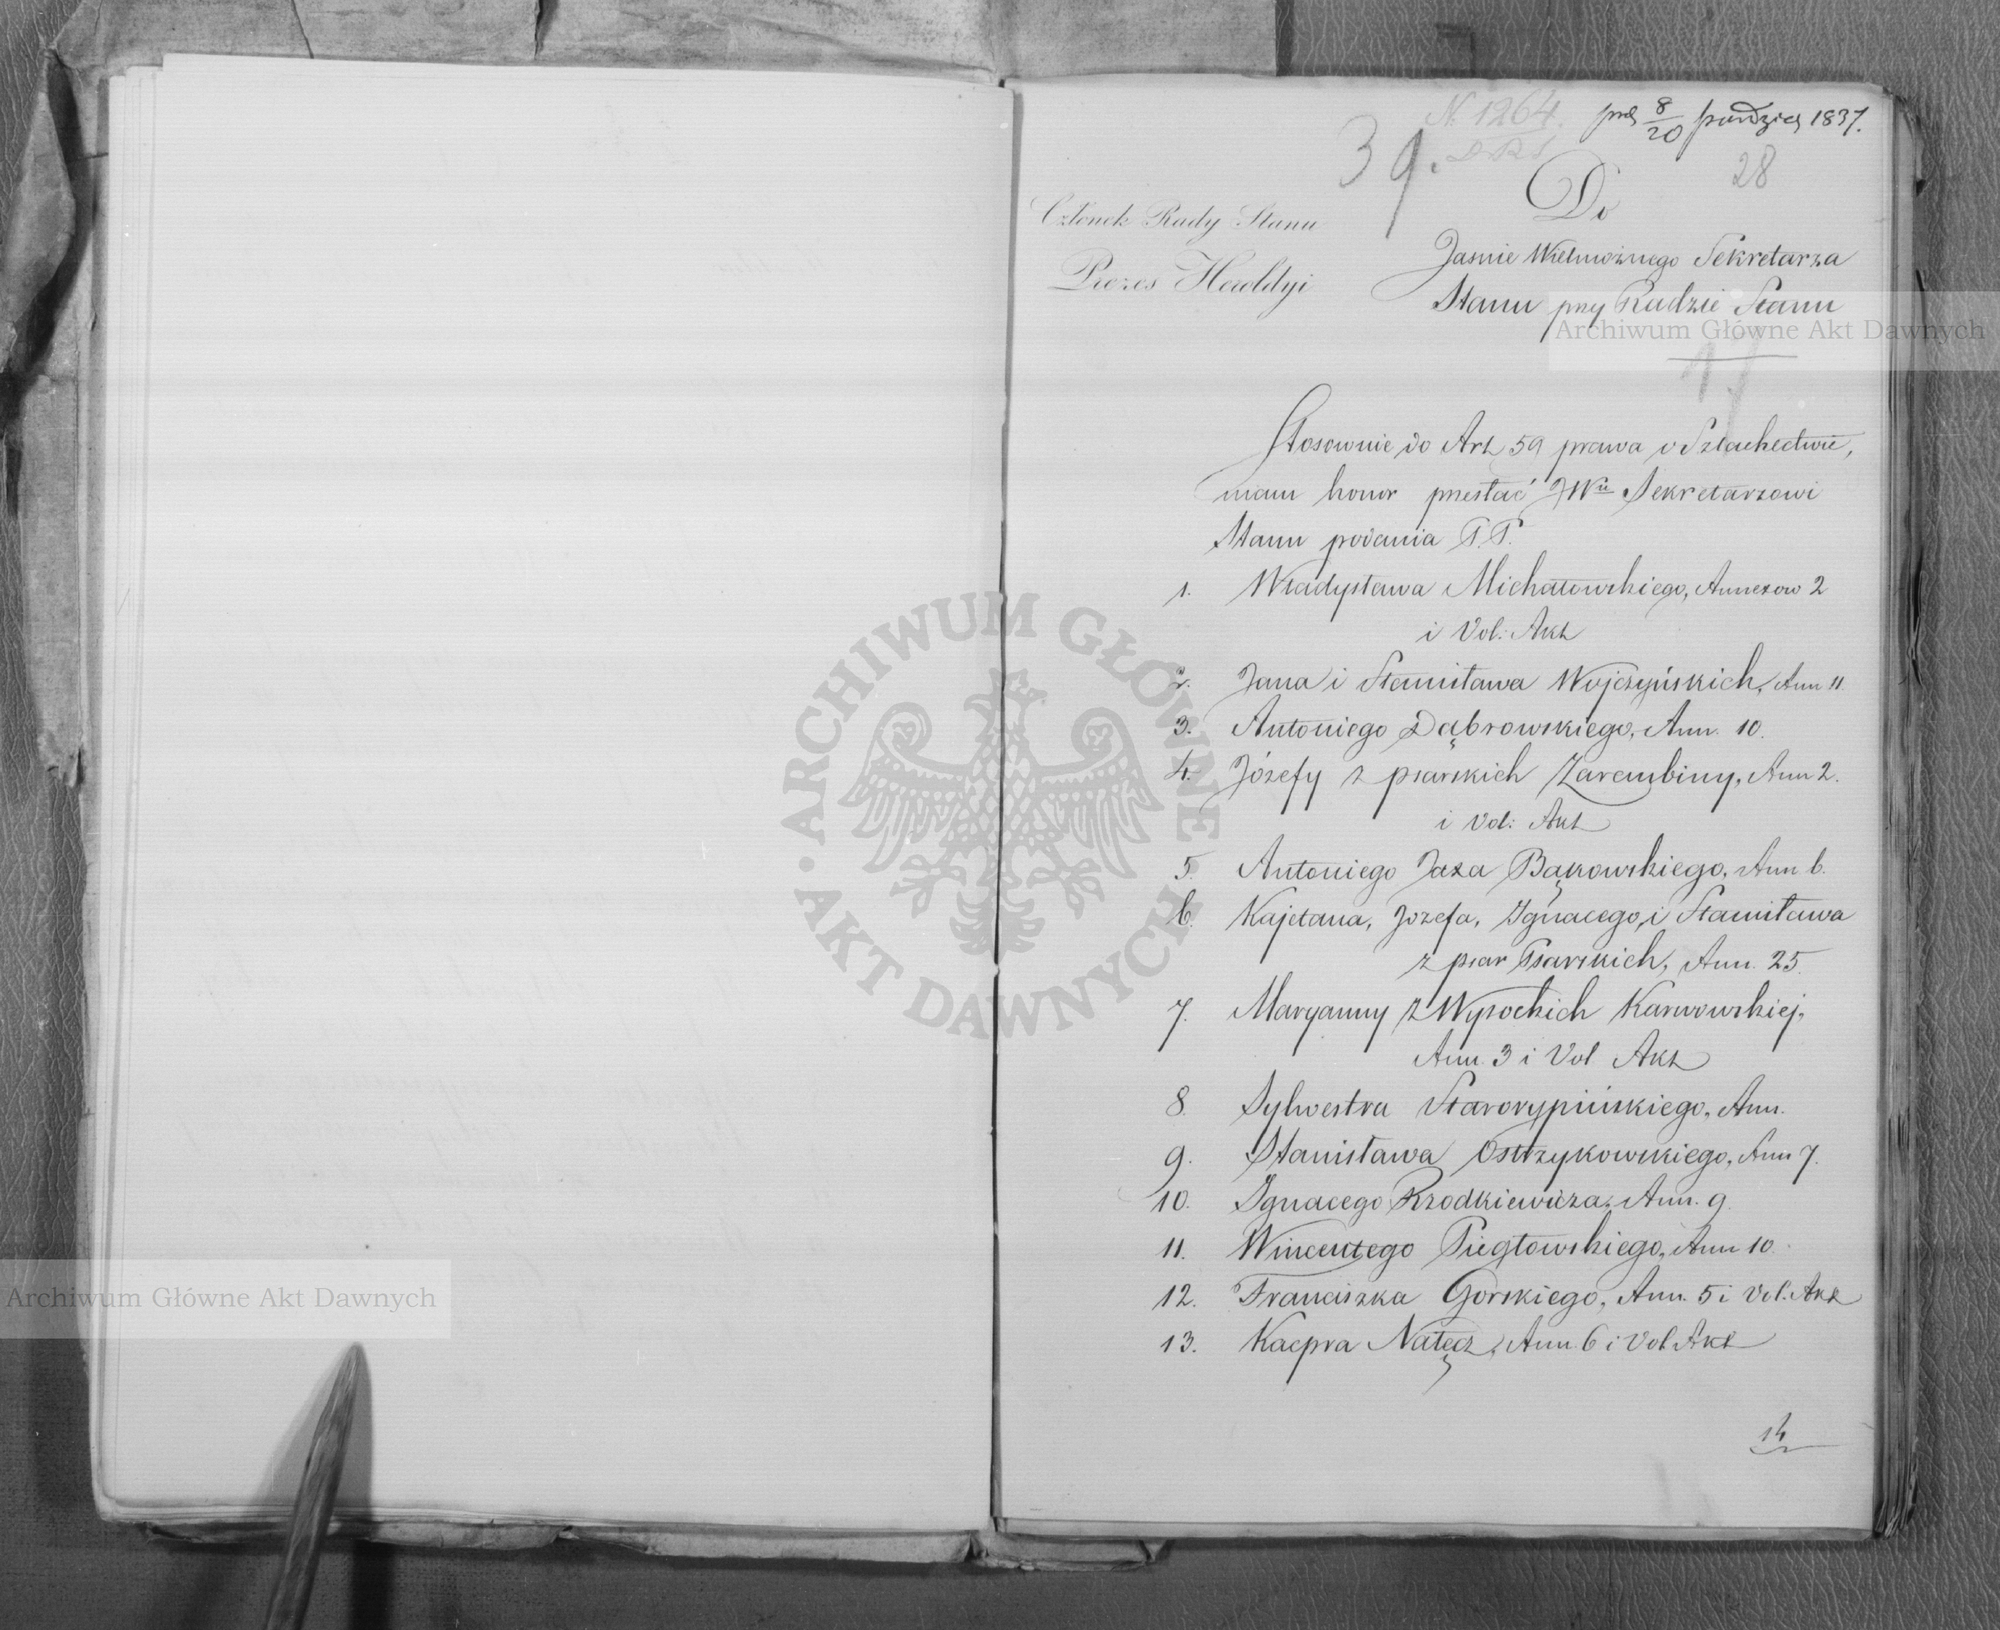 N. 1264.
39.
8/20 1837.
28
Do
Członek Rady Stanu
Prezes Heroldyi
Jasnie Wielmożnego Sekretarza
Stanu przy Radzie Stanu
Archiwum Główne Akt Dawnych
Stosownie do Art 59 prawa o Szlachectwie,
mam honor przesłać JWu Sekretarzowi
Stanu podania P.P.
1. Władysława Michałowskiego, Annexow 2
i Vol: Akt
2. Jana i Stanisława Wojczyńskich, Ann 11.
3. Antoniego Dąbrowskiego, Ann. 10.
4. Józefy z psarskich Zarembiny, Ann 2.
i Vol: Akt
5. Antoniego Jaxa Bąkowskiego, Ann 6.
6. Kajetana, Jozefa, Ignacego, i Stanisława
z psar Psarskich, Ann. 25.
7. Maryanny z Wysockich Karwowskiej,
Ann. 3 i Vol Akt
8. Sylwestra Starorypińskiego, Ann.
9. Stanisława Ostrzykowskiego, Ann 7.
10. Ignacego Rzodkiewicza, Ann. 9
11. Wincentego Piegłowskiego, Ann 10.
12. Franciszka Gorskiego, Ann. 5 i Vol. Akt
13. Kacpra Nałęcz, Ann. 6 i Vol Akt
14
ARCHIWUM GŁÓWNE AKT DAWNYCH
Archiwum Główne Akt Dawnych